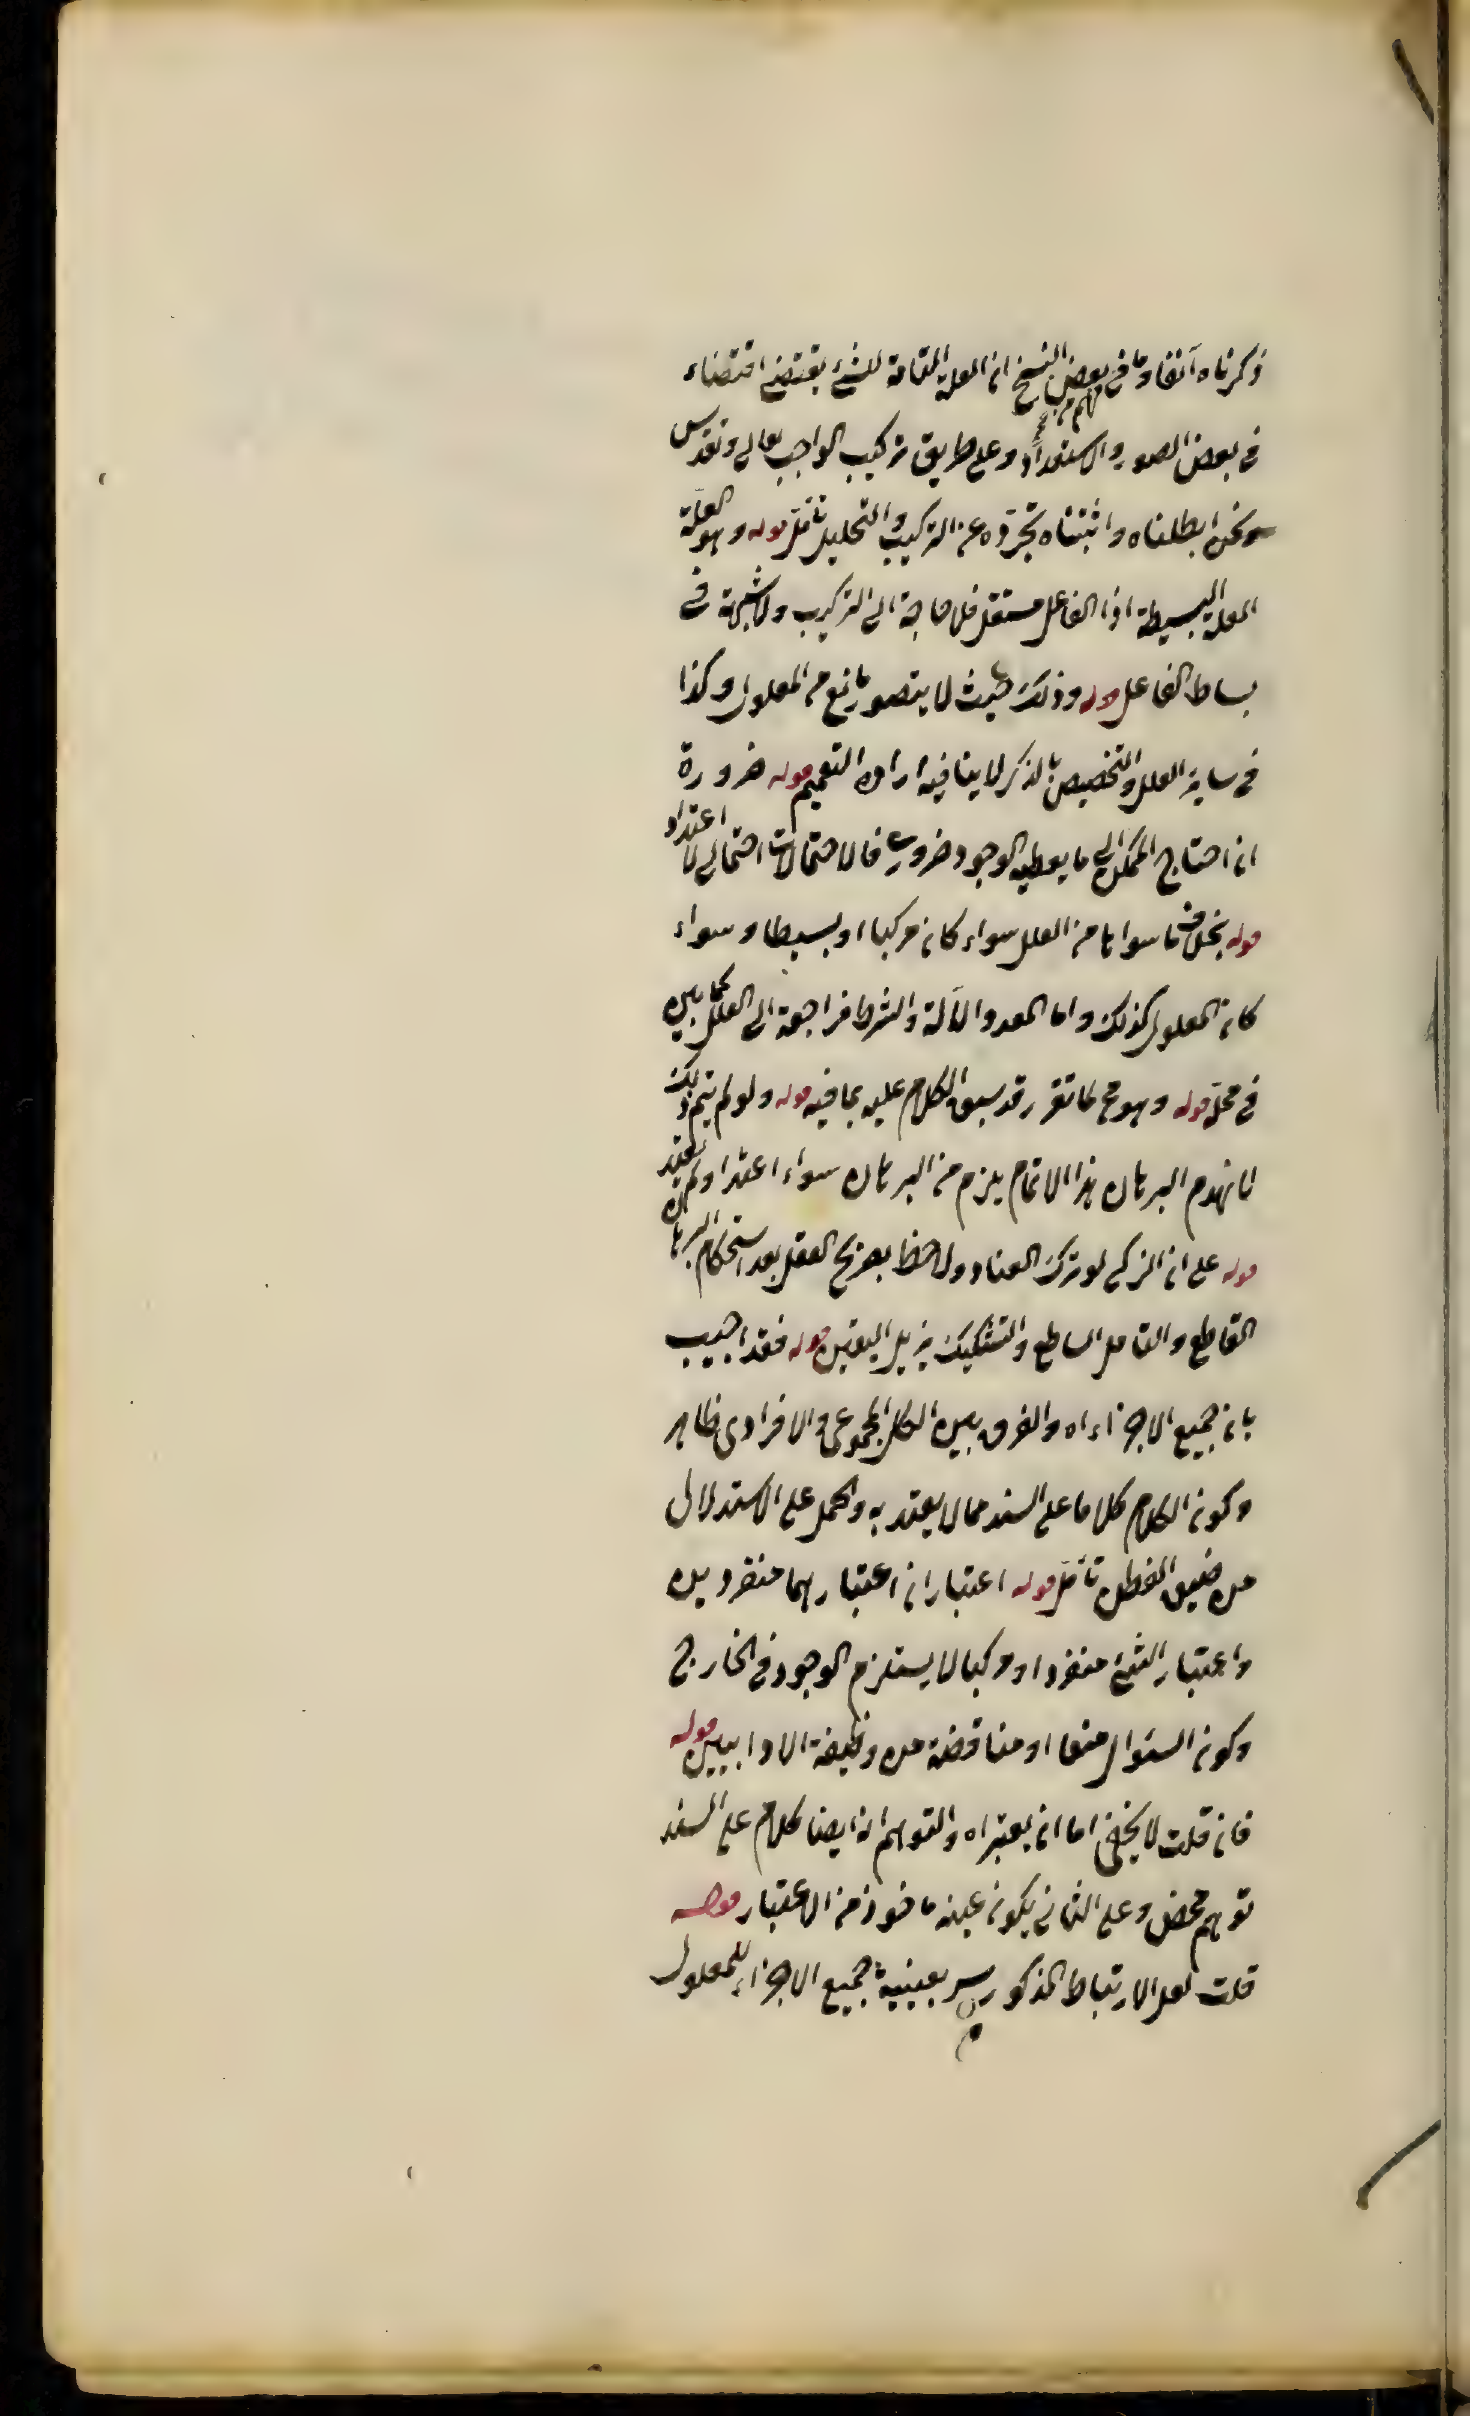 ذكرناه آنفا وما في بعض النسخ ان العلة التامة للشيء يقتضي اقتضاء
في بعض الصور والاستعداد وعلى طريق تركيب الواجب تعالى وتقدس
ونحن ابطلناه واثبتناه تجرده عن التركيب والتحليل تأمل قوله وهو العلة
العلة البسيطة اذا الفاعل مستقل فلا حاجة الى التركيب ولا شبهة في
بساط الفاعل قوله وذلك حيث لا يتصور مانع من المعلول وكذا
في ساير العلل والتخصيص بالذكر لا ينافيه ارادة التعميم قوله ضرورة
ان احتياج الممكن الى ما يعطيه الوجود ضروري فالاحتمالات احتمالي لا اعتداد
قوله بخلاف ما سواها من العلل سواء كان مركبا او بسيطا وسواء
كان المعلول كذلك واما المعد والآلة والشرط فراجعة الى العلل كما بين
في محله قوله وهو مح لما تقرر قد سبق الكلام عليه بما فيه قوله ولو لم يتم ذلك
لانهدم البرهان هذا الاتمام يلزم من البرهان سواء اعتد او لم يعتد
قوله على ان الزكي لو ترك العناد ولاحظ بصريح العقل بعد استحكام البرهان
القاطع والتأمل الساطع والتشكيك يزيل اليقين قوله فقد اجيب
بان جميع الاجزاء اه والفرق بين الكل المجموعي والافرادي ظاهر
وكون الكلام كلاما على السند مما لا يعتد به والحمل على الاستدلال
من ضيق الفطن تأمل قوله اعتبار ان اعتبارهما منفردين
واعتبار الشيء منفردا ومركبا لا يستلزم الوجود في الخارج
وكون السؤال منعا او مناقضة من وظيفة الادابيين قوله
فان قلت لا يخفى اما ان يعتبر اه والتوهم انه ايضا كلام على السند
توهم محض وعلى الثاني يكون عينه ماخوذ من الاعتبار قوله
قلت لعل الارتباط المذكور ليس بعينية جميع الاجزاء للمعلول